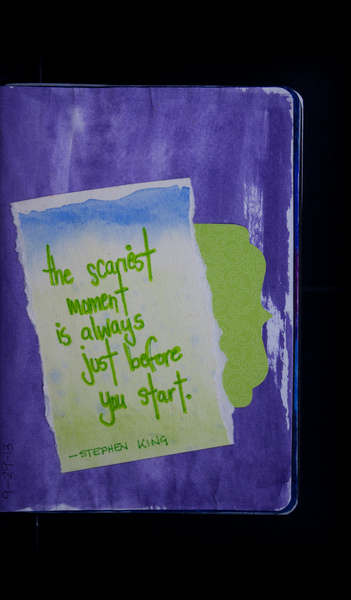 the scariest
moment
is always
just before
you start.
—STEPHEN KING